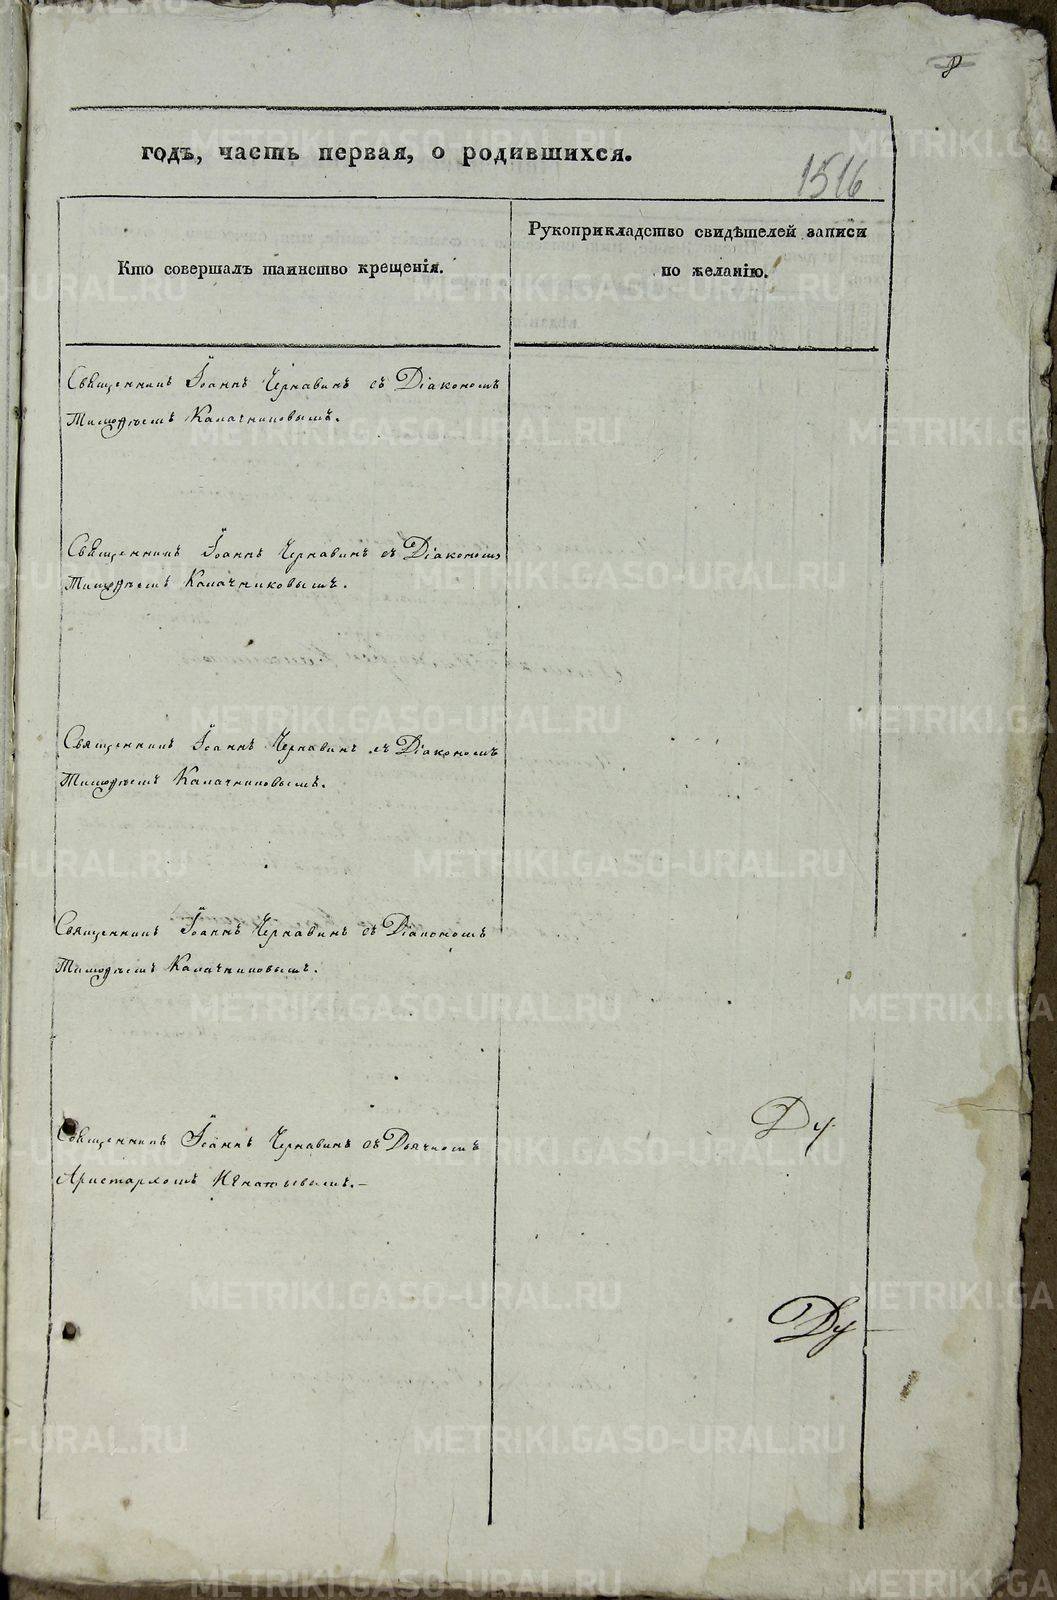 8
годъ, часть первая, о родившихся.
1516
Кто совершалъ таинство крещенія.
Рукоприкладство свидѣтелей записи
по желанію.
Священникъ Іоаннъ Чернавинъ съ Діакономъ
Тимофѣемъ Калачниковымъ.
Священникъ Іоаннъ Чернавинъ съ Діакономъ
Тимофѣемъ Калачниковымъ.
Священникъ Іоаннъ Чернавинъ съ Діакономъ
Тимофѣемъ Калачниковымъ.
Священникъ Іоаннъ Чернавинъ съ Діакономъ
Тимофѣемъ Калачниковымъ.
Священникъ Іоаннъ Чернавинъ съ Дьячкомъ
Аристархомъ
METRIKI.GASO-URAL.RU